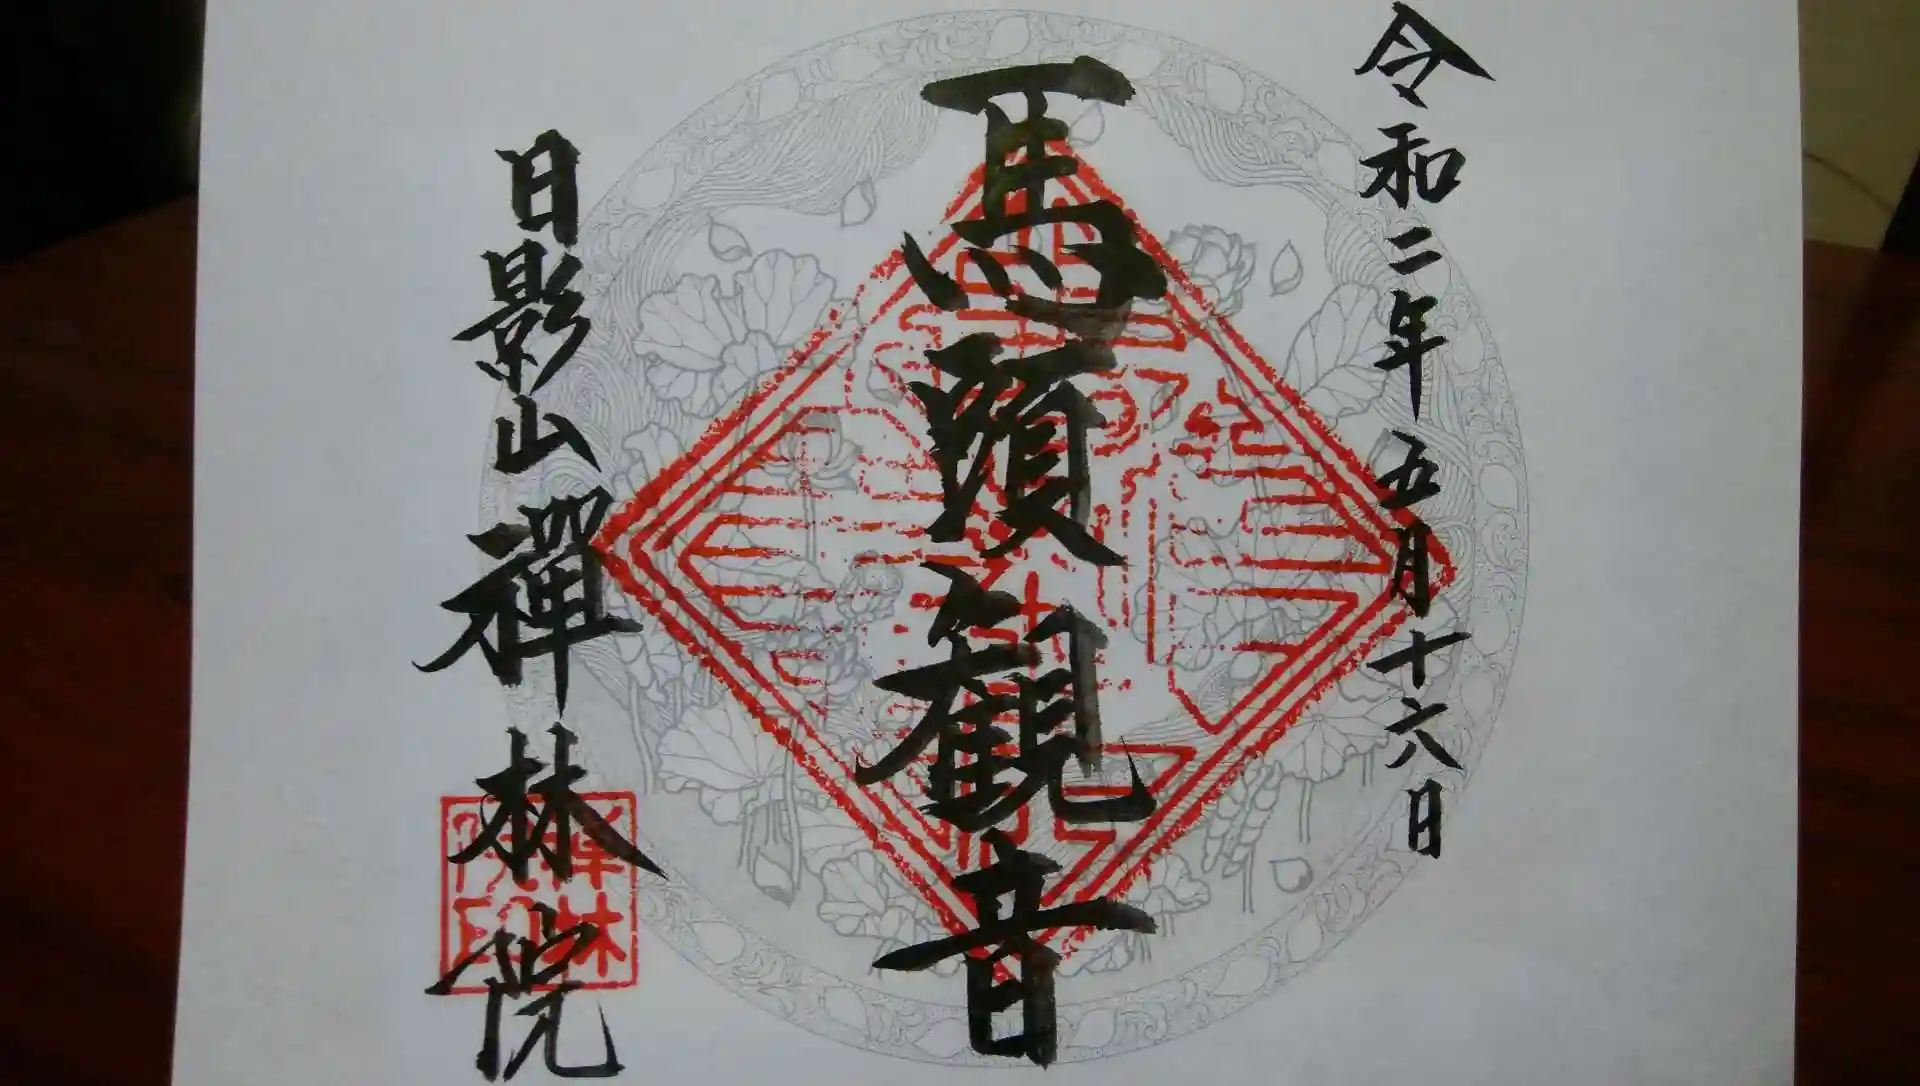 令和二年五月十六日
馬頭観音
日影山禅林院
禅林
院印